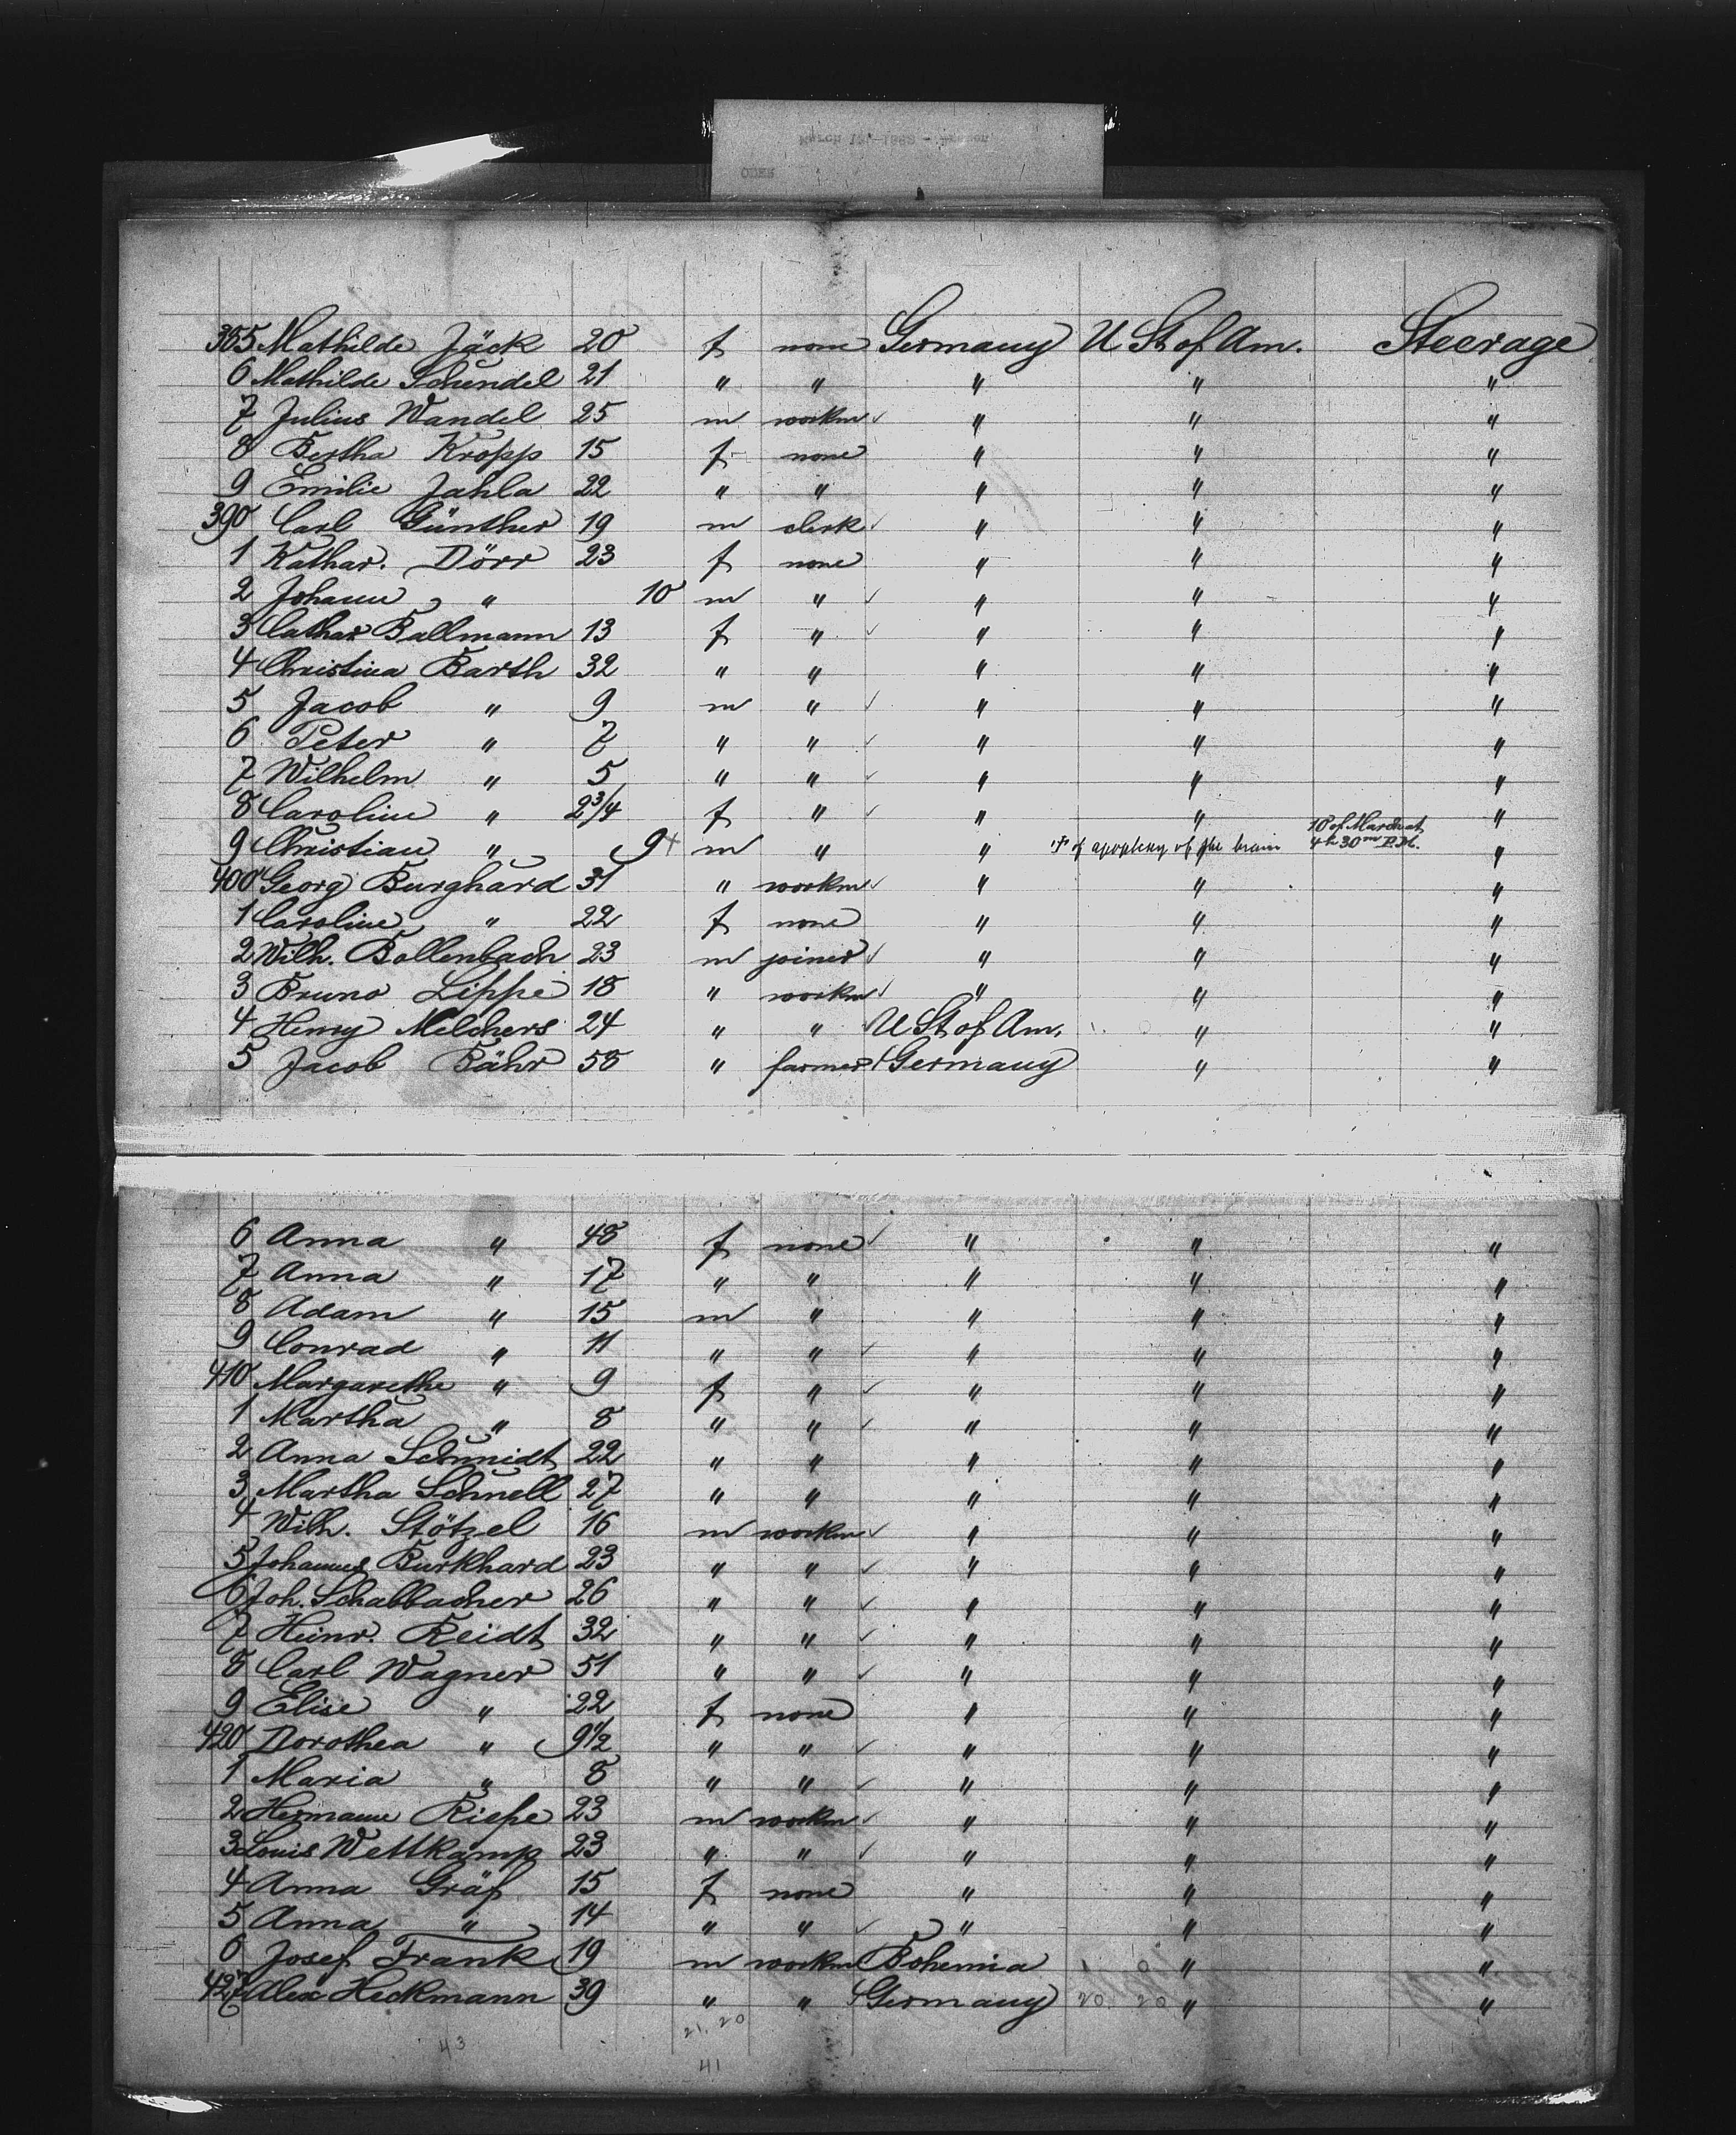 385 Mathilde Jäck 20 f none Germany U St of Am. Steerage
6 Mathilde Schendel 21 " " " " "
7 Julius Wandel 25 m workm ✓ " " "
8 Bertha Kropp 15 f none " " "
9 Emilie Jahla 22 " " " " "
390 Carl Günther 19 m clerk ✓ " " "
1 Kathar. Dörr 23 f none " " "
2 Johann " 10 m " ✓ " " "
3 Cathar Ballmann 13 f " ✓ " " "
4 Christina Barth 32 " " " " "
5 Jacob " 9 m " ✓ " " "
6 Peter " 7 " " ✓ " " "
7 Wilhelm " 5 " " ✓ " " "
8 Caroline " 2 3/4 f " ✓ " " "
9 Christian " 9 + m " " † of apoplexy of the brain " 10 of March at 4h 30m P.M. "
400 Georg Burghard 31 " workm ✓ " " "
1 Caroline " 22 f none " " "
2 Wilh. Bollenbach 23 m joiner ✓ " " "
3 Bruno Lippe 18 " workm ✓ " " "
4 Henry Melchers 24 " " U St of Am. " "
5 Jacob Bähr 58 " farmer ✓ Germany " "
6 Anna " 48 f none ✓ " " "
7 Anna " 17 " " " " "
8 Adam " 15 m " " " "
9 Conrad " 11 " " ✓ " " "
410 Margarethe " 9 f " ✓ " " "
1 Martha " 8 " " ✓ " " "
2 Anna Schmidt 22 " " " " "
3 Martha Schnell 27 " " " " "
4 Wilh. Stötzel 16 m workm ✓ " " "
5 Johannes Burkhard 23 " " ✓ " " "
6 Joh. Schalbacher 26 " " ✓ " " "
7 Heinr. Reidt 32 " " ✓ " " "
8 Carl Wagner 51 " " ✓ " " "
9 Elise " 22 f none " " "
420 Dorothea " 9 1/2 " " ✓ " " "
1 Maria " 8 " " ✓ " " "
2 Hermann Riepe 23 m workm ✓ " " "
3 Louis Wettkamp 23 " " ✓ " " "
4 Anna Gräf 15 f none " " "
5 Anna " 14 " " ✓ " " "
6 Josef Frank 19 m workm Bohemia " "
427 Alex Heckmann 39 " " Germany 20 20 " "
21. 20
43
41